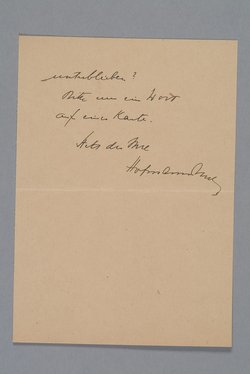 unterbleiben?
Bitte um ein Wort
auf einer Karte.
Stets der Ihre
Hofmannsthal